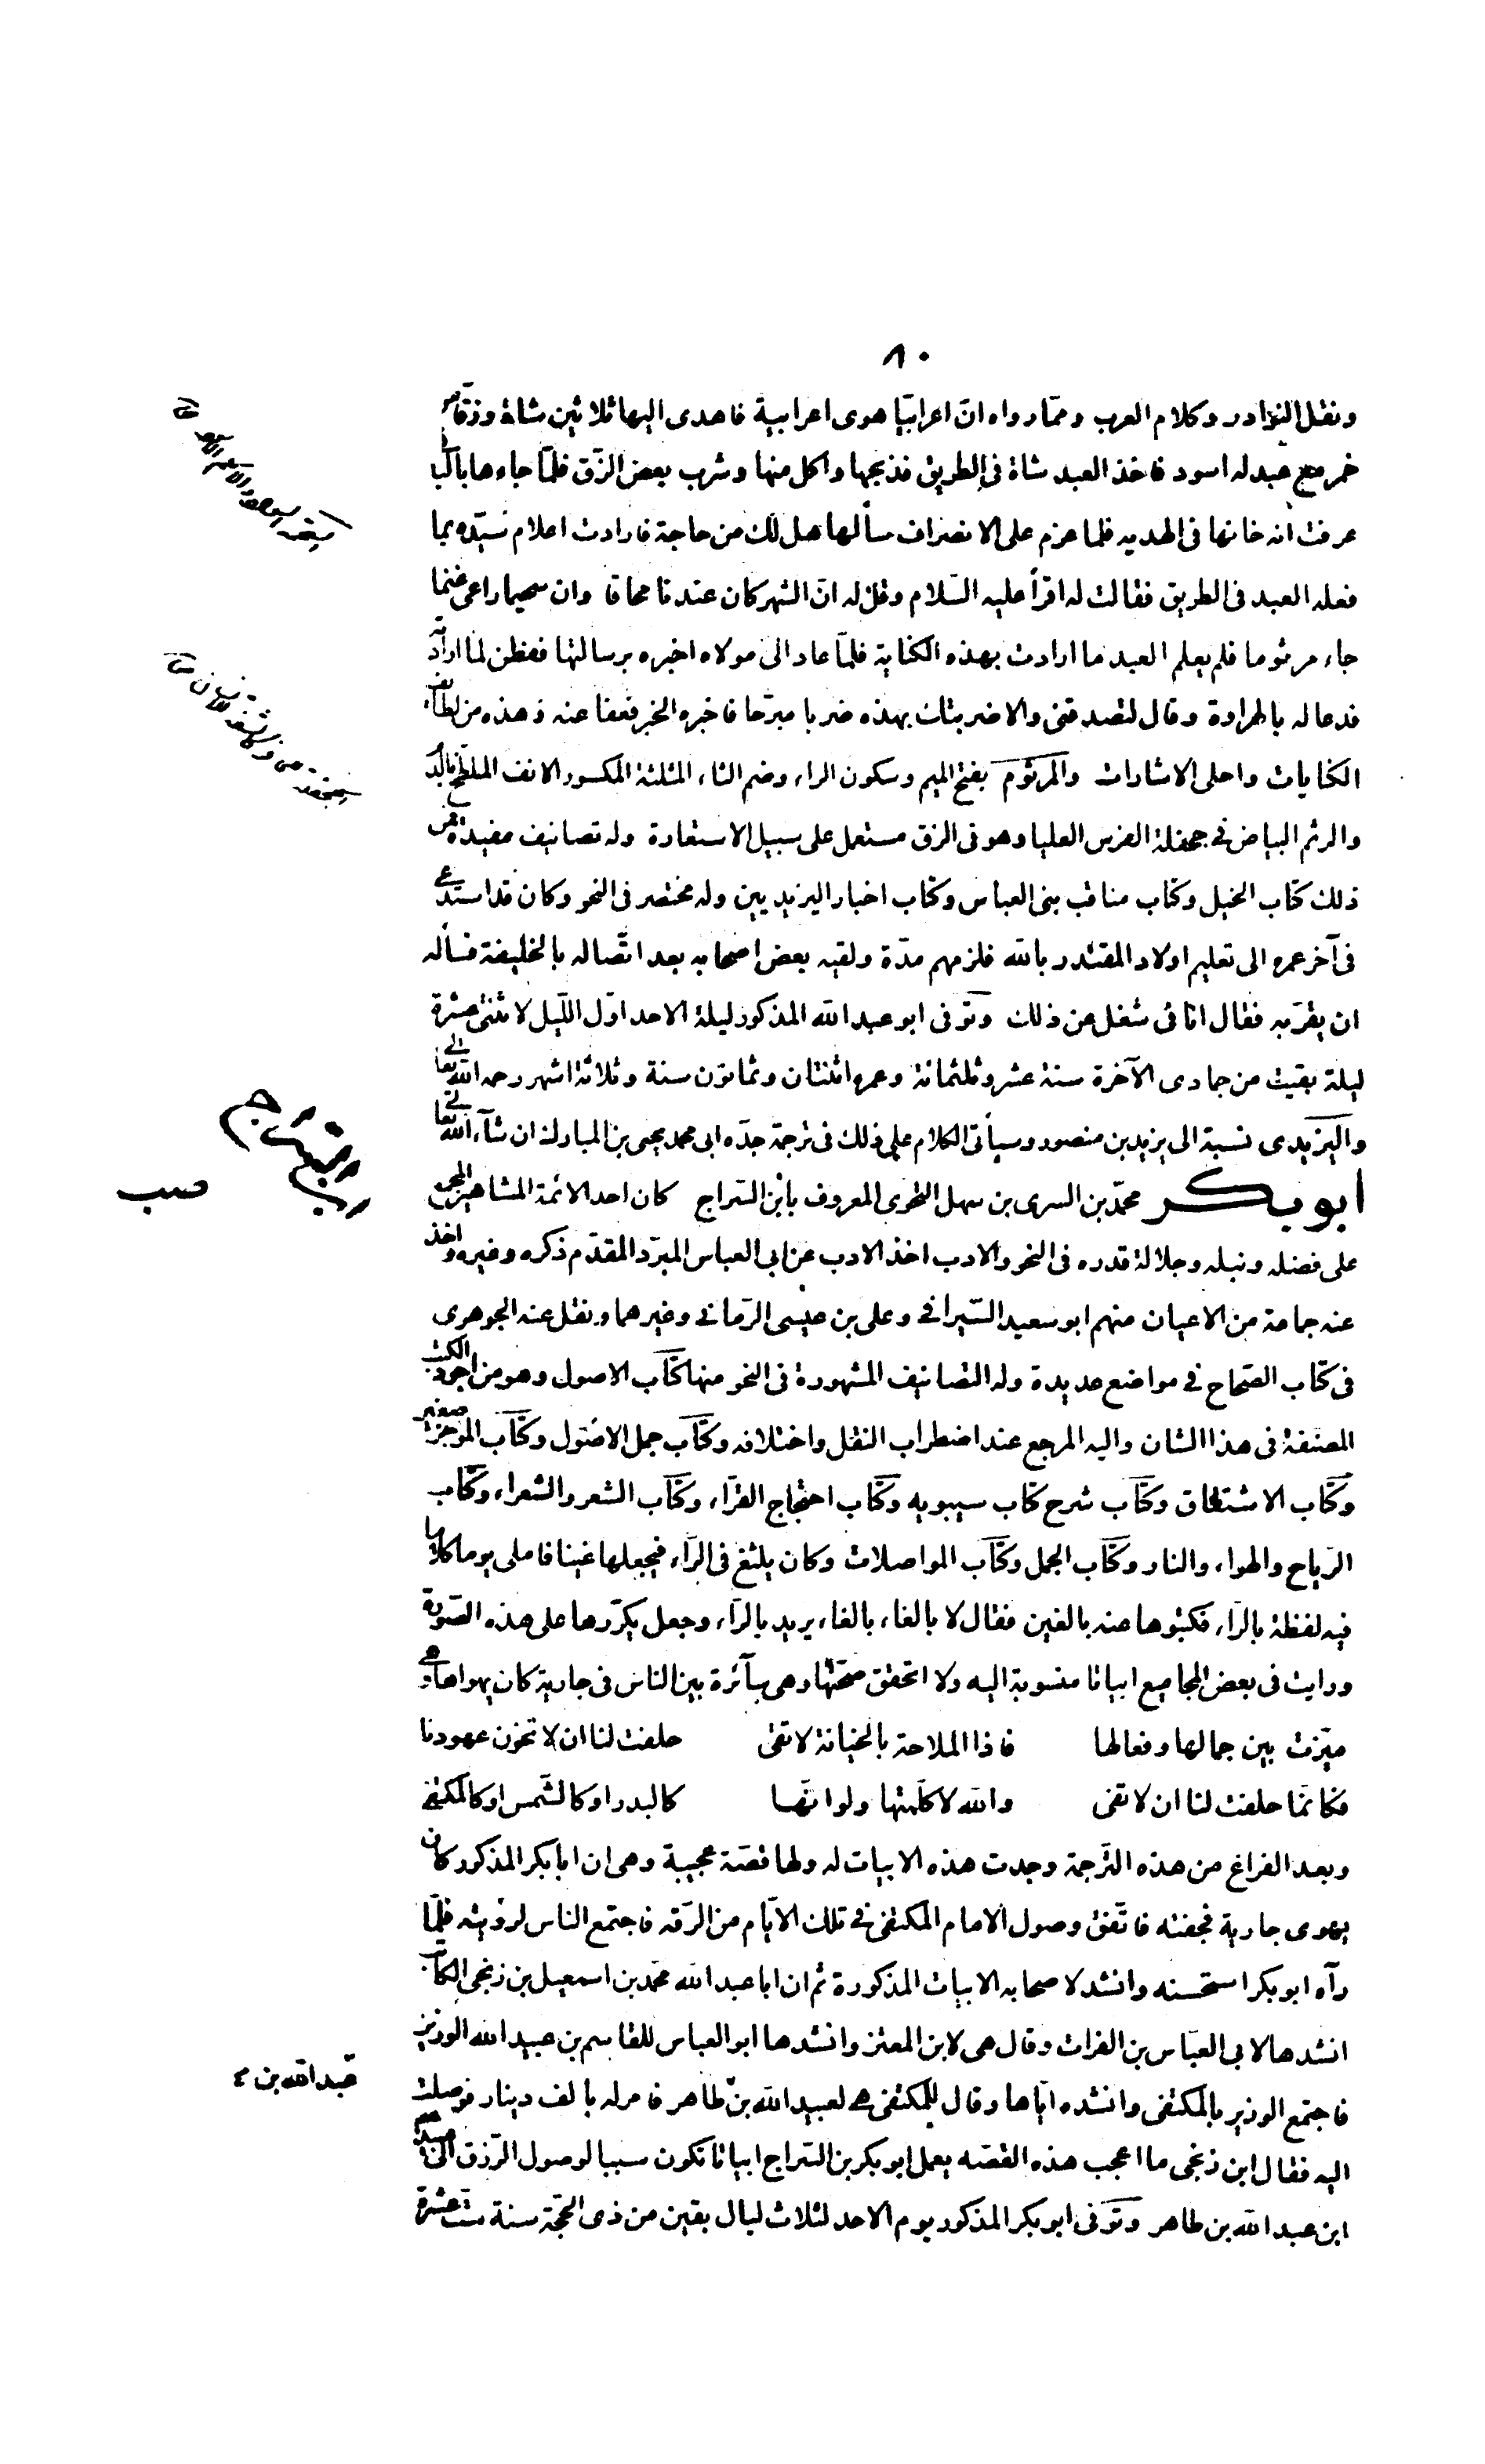 ٨٠
ونقل النوادر وكلام العرب وممّا رواه انّ اعرابيّا هوى اعرابية فاهدى اليها ثلاثين شاة وزقّا من
خمر مع عبد له اسود فاخذ العبد شاة فى الطريق فذبحها واكل منها وشرب بعض الزّق فلمّا جاءها بالباقى
عرفت انه خانها فى الهديه فلما عزم على الانصراف سألها هل لك من حاجة فارادت اعلام سيّده بما
فعله العبد فى الطريق فقالت له اقرأ عليه السّلام وقل له انّ الشهر كان عندنا محاقا وان سحيما راعى غنمنا
جاء مرثوما فلم يعلم العبد ما ارادت بهذه الكناية فلمّا عاد الى مولاه اخبره برسالتها ففطن لما ارادته
فدعا له بالهراوة وقال لتصدقنى والا ضربتك بهذه ضربا مبرّحا فاخبره الخبر فعفا عنه وهذه من لطائف
الكنايات واحلى الاشارات والمرثوم بفتح الميم وسكون الراء وضم الثاء المثلثة المكسور الانف الملطخ بالدّم
والرثم البياض في جحفلة الفرس العليا وهو فى الزق مستعمل على سبيل الاستعارة وله تصانيف مفيدة فمن
ذلك كتاب الخيل وكتاب مناقب بنى العباس وكتاب اخبار اليزيديين وله مختصر فى النحو وكان قد استدعي
فى آخر عمره الى تعليم اولاد المقتدر بالله فلزمهم مدّة ولقيه بعض اصحابه بعد اتّصاله بالخليفة فسأله
ان يقرئه فقال انا فى شغل عن ذلك وتوفى ابو عبد الله المذكور ليلة الاحد اوّل اللّيل لاثنتى عشرة
ليلة بقيت من جمادى الآخرة سنة عشر وثلثمائة وعمره اثنتان وثمانون سنة وثلاثة اشهر رحمه الله تعالى
واليزيدى نسبة الى يزيد بن منصور وسيأتى الكلام على ذلك فى ترجمة جدّه ابى محمد يحيى بن المبارك ان شآء الله تعالى
ابو بكر محمّد بن السرى بن سهل النحوى المعروف بابن السّراج كان احد الائمة المشاهير المجمع
على فضله ونبله وجلالة قدره فى النحو والادب اخذ الادب عن ابى العباس المبرّد المقدّم ذكره وغيره واخذ
عنه جماعة من الاعيان منهم ابو سعيد السّيرافي وعلى بن عيسى الرّمانى وغيرهما ونقل عنه الجوهرى
فى كتاب الصّحاح في مواضع عديدة وله التصانيف المشهورة فى النحو منها كتاب الاصول وهو من اجود الكتب
المصنّفة فى هذا الشان واليه المرجع عند اضطراب النقل واختلافه وكتاب جمل الاصول وكتاب الموجز صغير
وكتاب الاشتقاق وكتاب شرح كتاب سيبويه وكتاب احتجاج القرّاء وكتاب الشعر والشعراء وكتاب
الرّياح والهواء والنار وكتاب الجمل وكتاب المواصلات وكان يلثغ فى الرّاء فيجعلها غينا فاملى يوما كلاما
فيه لفظة بالرّاء فكتبوها عنه بالغين فقال لا بالغاء بالغاء يريد بالرّاء وجعل يكرّرها على هذه الصّورة
ورايت فى بعض المجاميع ابياتا منسوبة اليه ولا اتحقق صحّتها وهى سآئرة بين الناس فى جارية كان يهواها وهي
ميّزت بين جمالها وفعالها فاذا الملاحة بالخيانة لا تفى حلفت لنا ان لا تخون عهودنا
فكانما حلفت لنا ان لا تفى والله لا كلّمتها ولو انّها كالبدر او كالشّمس او كالمكتفى
وبعد الفراغ من هذه التّرجمة وجدت هذه الابيات له ولها قصّة عجيبة وهى ان ابا بكر المذكور كان
يهوى جارية فجفته فاتّفق وصول الامام المكتفى في تلك الايّام من الرّقه فاجتمع الناس لرؤيته فلمّا
رآه ابو بكر استحسنه وانشد لاصحابه الابيات المذكورة ثم ان ابا عبد الله محمّد بن اسمعيل بن زنجى الكاتب
انشدها لابى العبّاس بن الفرات وقال هى لابن المعتز وانشدها ابو العباس للقاسم بن عبيد الله الوزير
فاجتمع الوزير بالمكتفى وانشده ايّاها وقال للمكتفى هي لعبيد الله بن طاهر فامر له بالف دينار فوصلت
عبد الله بن
اليه فقال ابن زنجى ما اعجب هذه القصّه يعمل ابو بكر بن السّراج ابياتا تكون سببا لوصول الرّزق الى عبيد الله
ابن عبد الله بن طاهر وتوفى ابو بكر المذكور يوم الاحد لثلاث ليال بقين من ذى الحجّة سنة ستّ عشرة
ابن السّراج